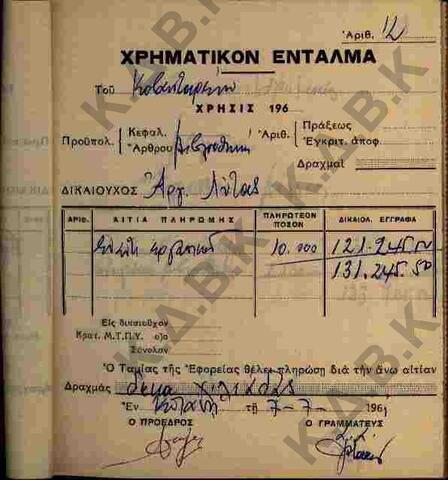 Ἀριθ. 12
ΧΡΗΜΑΤΙΚΟΝ ΕΝΤΑΛΜΑ
Τοῦ
ΧΡΗΣΙΣ 196
Προϋπολ. Κεφαλ. Ἄρθρου Ἀριθ. Πράξεως Ἐγκριτ. ἀποφ.
Δραχμαί
ΔΙΚΑΙΟΥΧΟΣ Ἀργ.
ΑΡΙΘ. ΑΙΤΙΑ ΠΛΗΡΩΜΗΣ ΠΛΗΡΩΤΕΟΝ ΠΟΣΟΝ ΔΙΚΑΙΟΛ. ΕΓΓΡΑΦΑ
10.000 121.245.50
131.245.50
Εἰς δικαιοῦχον
Κρατ. Μ.Τ.Π.Υ. ο)ο
Σύνολον
Ὁ Ταμίας τῆς Ἐφορείας θέλει πληρώσῃ διὰ τὴν ἄνω αἰτίαν
Δραχμάς δέκα χιλιάδας
Ἐν Κοζάνῃ τῇ 7-7- 196
Ο ΠΡΟΕΔΡΟΣ Ο ΓΡΑΜΜΑΤΕΥΣ
Κ.Δ.Β.Κ